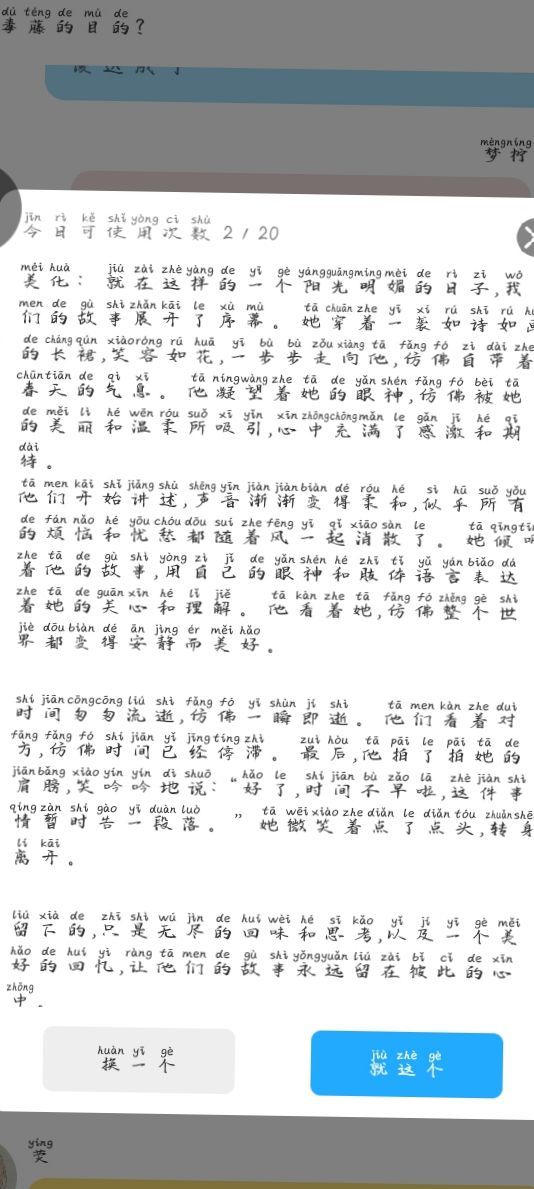 dú téng de mù de
毒藤的目的?
mèngníng
梦柠
jīn rì kě shǐ yòng cì shù
今日可使用次数 2 / 20
měi huà jiù zài zhè yàng de yī gè yáng guāng míng mèi de rì zi wǒ
美化：就在这样的一个阳光明媚的日子,我
men de gù shi zhǎn kāi le xù mù tā chuān zhe yī xí rú shī rú
们的故事展开了序幕。她穿着一袭如诗如画
de cháng qún xiào róng rú huā yī bù bù zǒu xiàng tā fǎng fó zì dài zhe
的长裙,笑容如花,一步步走向他,仿佛自带着
chūn tiān de qì xī tā níng wàng zhe tā de yǎn shén fǎng fó bèi tā
春天的气息。他凝望着她的眼神,仿佛被她
de měi lì hé wēn róu suǒ xī yǐn xīn zhōng chōng mǎn le gǎn jī hé qī
的美丽和温柔所吸引,心中充满了感激和期
dài
待。
tā men kāi shǐ jiǎng shù shēng yīn jiàn jiàn biàn dé róu hé sì hū suǒ yǒu
他们开始讲述,声音渐渐变得柔和,似乎所有
de fán nǎo hé yōu chóu dōu suí zhe fēng yī qǐ xiāo sàn le tā qīng tīng
的烦恼和忧愁都随着风一起消散了。她倾听
zhe tā de gù shi yòng zì jǐ de yǎn shén hé zhī tǐ yǔ yán biǎo dá
着他的故事,用自己的眼神和肢体语言表达
zhe tā de guān xīn hé lǐ jiě tā kàn zhe tā fǎng fó zhěng gè shì
着她的关心和理解。他看着她,仿佛整个世
jiè dōu biàn dé ān jìng ér měi hǎo
界都变得安静而美好。
shí jiān cōng cōng liú shì fǎng fó yī shùn jí shì tā men kàn zhe duì
时间匆匆流逝,仿佛一瞬即逝。他们看着对
fāng fǎng fó shí jiān yǐ jīng tíng zhì zuì hòu tā pāi le pāi tā de
方,仿佛时间已经停滞。最后,他拍了拍她的
jiān bǎng xiào yín yín dì shuō hǎo le shí jiān bù zǎo lā zhè jiàn shì
肩膀,笑吟吟地说：“好了,时间不早啦,这件事
qing zàn shí gào yī duàn luò tā wēi xiào zhe diǎn le diǎn tóu zhuǎn shēn
情暂时告一段落。”她微笑着点了点头,转身
lí kāi
离开。
liú xià de zhī shì wú jìn de huí wèi hé sī kǎo yǐ jí yī gè měi
留下的,只是无尽的回味和思考,以及一个美
hǎo de huí yì ràng tā men de gù shi yǒng yuǎn liú zài bǐ cǐ de xīn
好的回忆,让他们的故事永远留在彼此的心
zhōng
中。
huàn yī gè
换一个
jiù zhè gè
就这个
yíng
荧